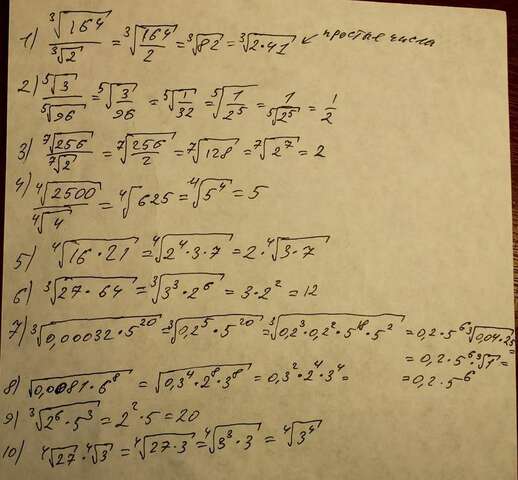 1) ∛164 / ∛2 = ∛(164/2) = ∛82 = ∛(2·41) ← простые числа
2) ⁵√3 / ⁵√96 = ⁵√(3/96) = ⁵√(1/32) = ⁵√(1/2⁵) = 1/⁵√(2⁵) = 1/2
3) ⁷√256 / ⁷√2 = ⁷√(256/2) = ⁷√128 = ⁷√(2⁷) = 2
4) ⁴√2500 / ⁴√4 = ⁴√625 = ⁴√(5⁴) = 5
5) ⁴√(16·21) = ⁴√(2⁴·3·7) = 2·⁴√(3·7)
6) ∛(27·64) = ∛(3³·2⁶) = 3·2² = 12
7) ∛(0,00032·5²⁰) = ∛(0,2⁵·5²⁰) = ∛(0,2³·0,2²·5¹⁸·5²) = 0,2·5⁶ ∛(0,04·25
= 0,2·5⁶·∛1 =
= 0,2·5⁶
8) √(0,0081·6⁸) = √(0,3⁴·2⁸·3⁸) = 0,3²·2⁴·3⁴ =
9) ∛(2⁶·5³) = 2²·5 = 20
10) ⁴√27·⁴√3 = ⁴√(27·3) = ⁴√(3³·3) = ⁴√(3⁴)